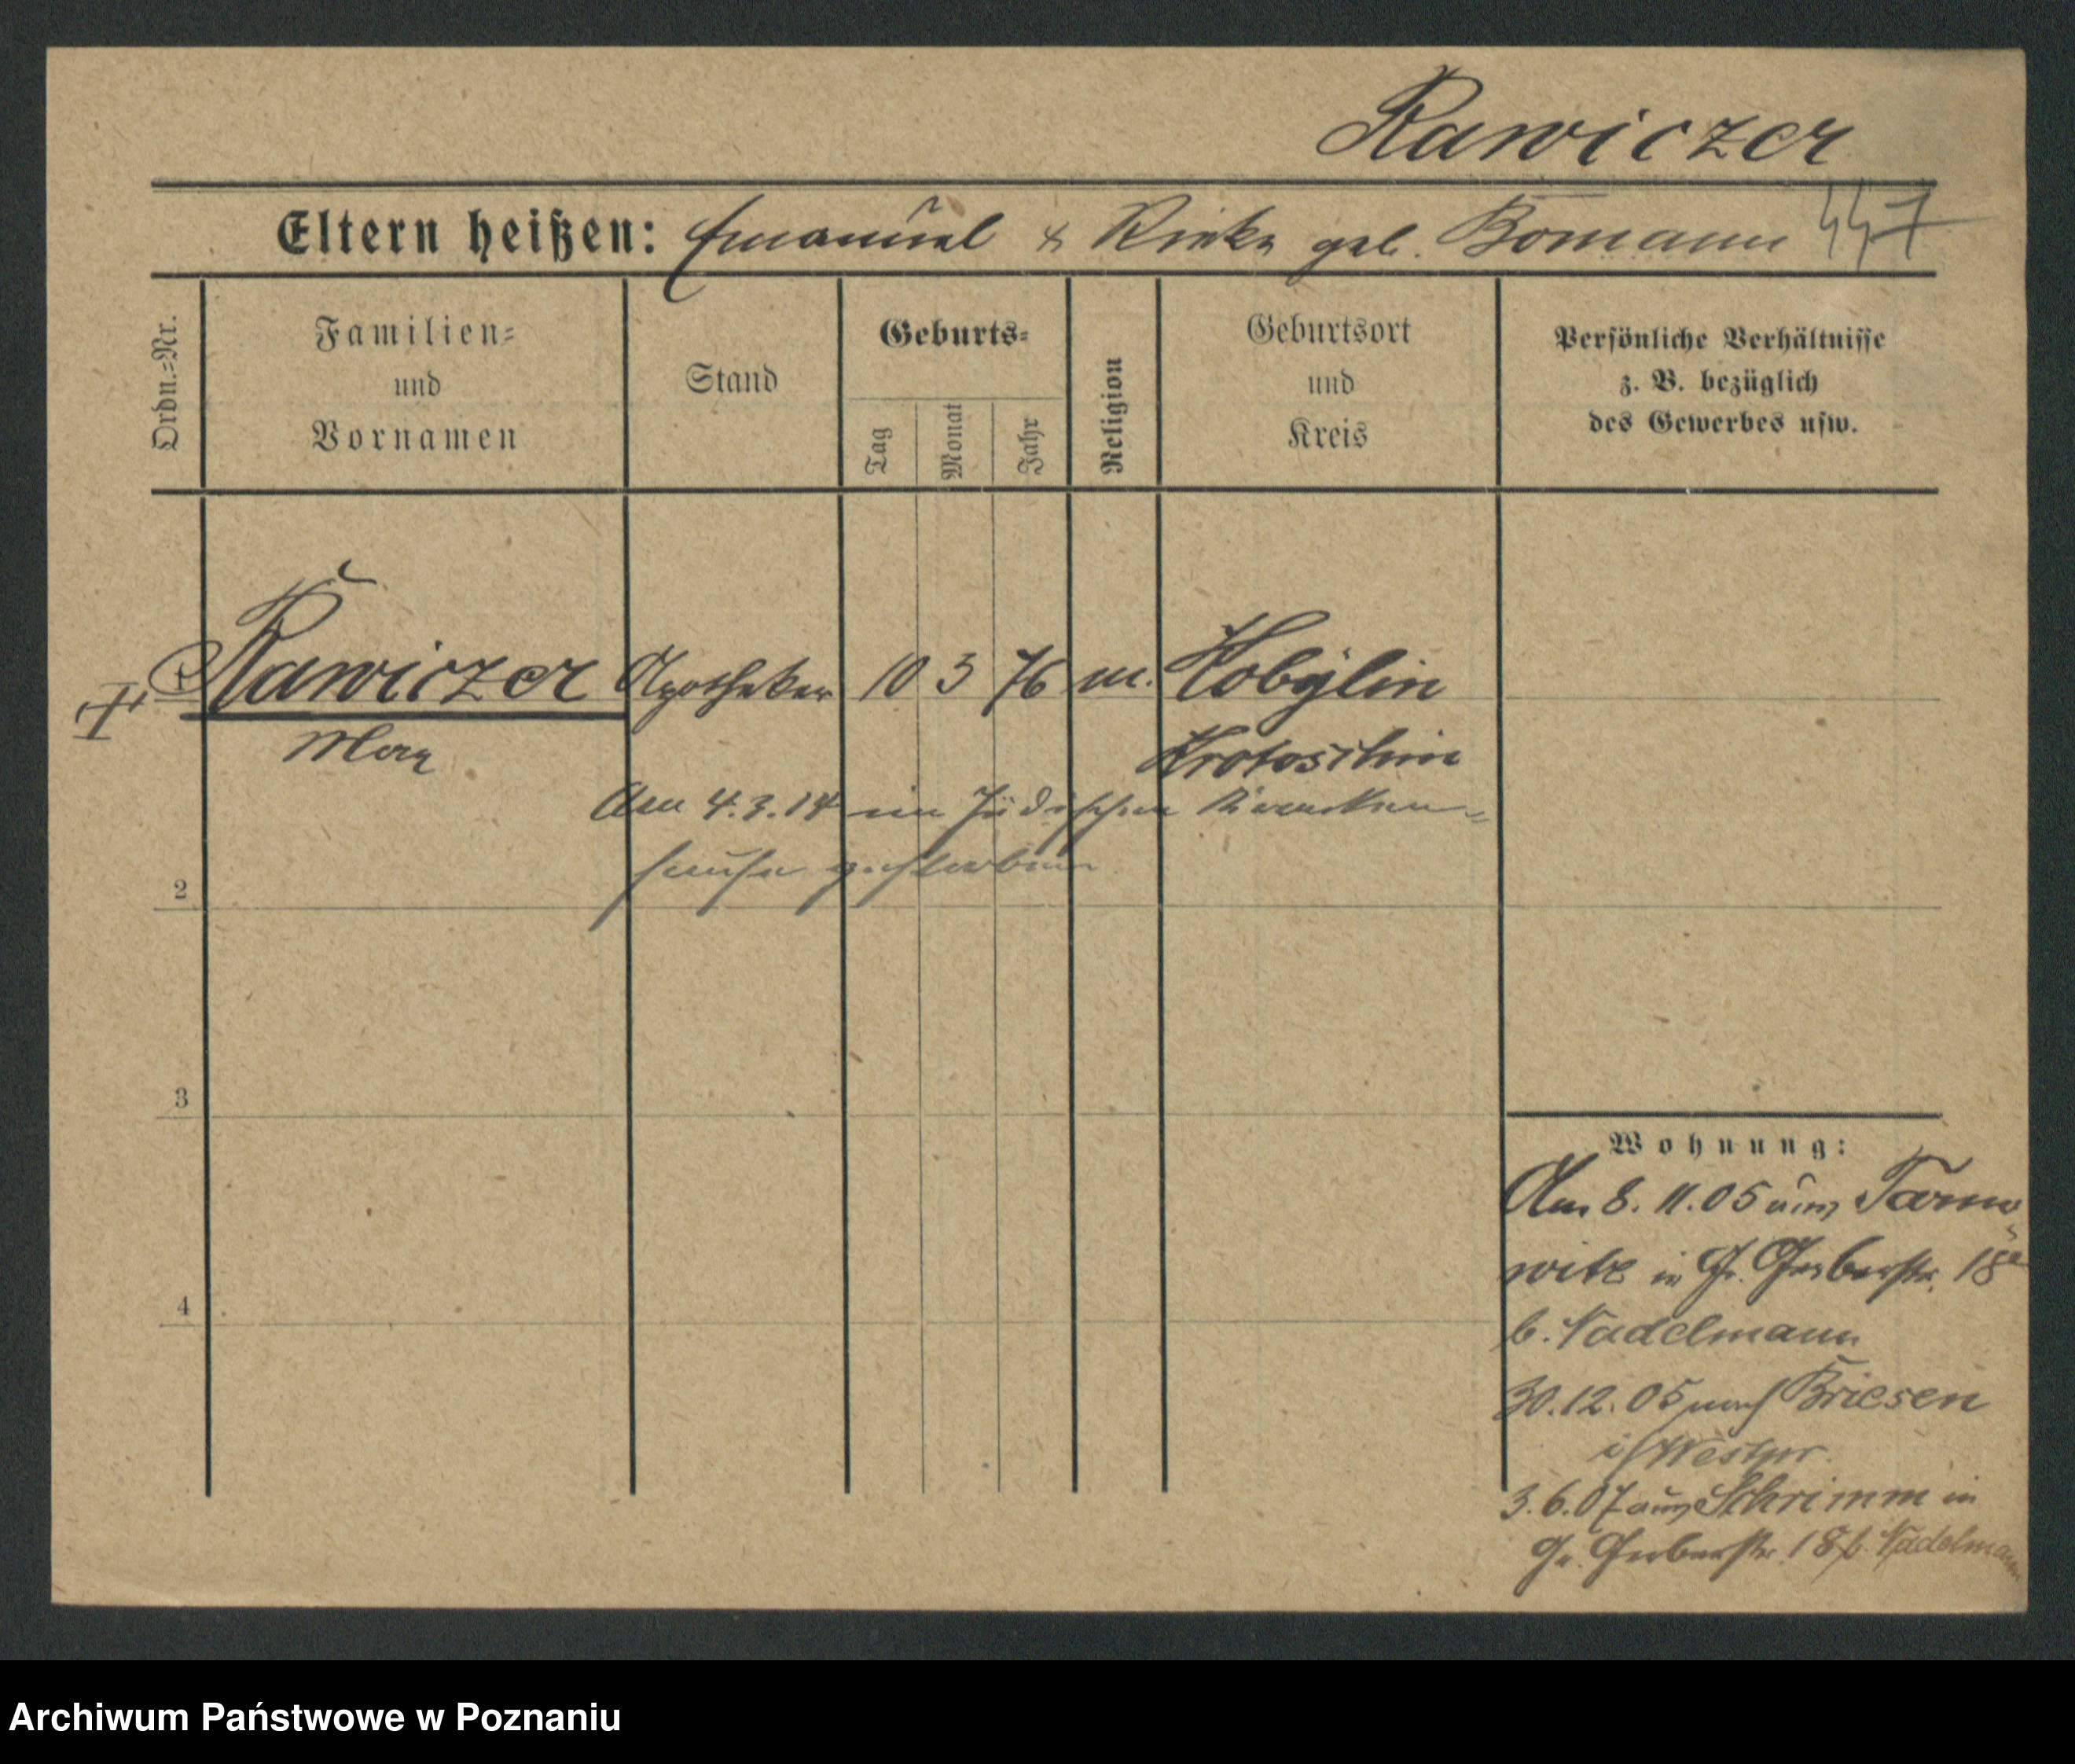 Rawiczer
Eltern heißen: Emanuel & Rieke geb. Bomann 447
Ordn.-Nr.
Familien-
und
Vornamen
Stand
Geburts-
Tag
Monat
Jahr
Religion
Geburtsort
und
Kreis
Persönliche Verhältnisse
z. B. bezüglich
des Gewerbes usw.
Rawiczer Apotheker 10 3 76 m. Kobylin
Max Krotoschin
Am 4.3.14 im Jüdischen Kranken-
hause gestorben
2
3
4
Wohnung:
Am 8. 11. 05 aus Tarno-
witz in Gr. Gerberstr. 18
b. Nadelmann
30. 12. 05 nach Briesen
i/Westpr.
3. 6. 07 aus Schrimm in
Gr. Gerberstr. 18 b. Nadelmann
Archiwum Państwowe w Poznaniu